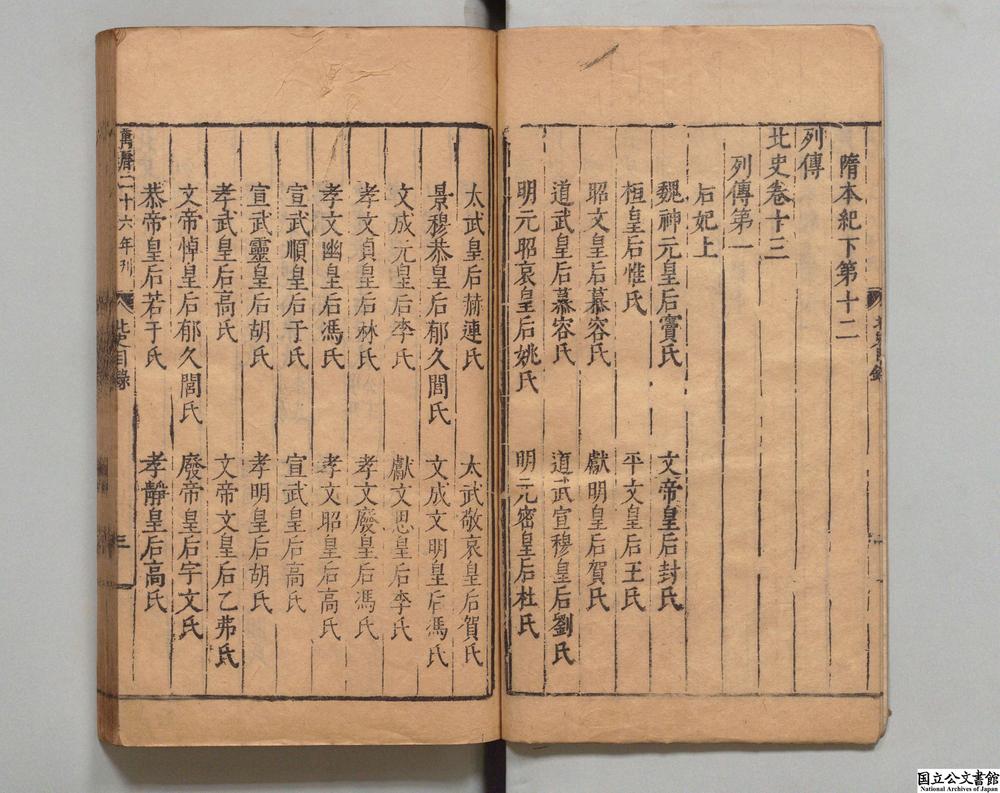 隋本紀下第十二
列傳
北史卷十三
列傳第一
后妃上
魏神元皇后竇氏 文帝皇后封氏
桓皇后惟氏 平文皇后王氏
昭文皇后慕容氏 獻明皇后賀氏
道武皇后慕容氏 道武宣穆皇后劉氏
明元昭哀皇后姚氏 明元密皇后杜氏
太武皇后赫連氏 太武敬哀皇后賀氏
景穆恭皇后郁久閭氏 文成文明皇后馮氏
文成元皇后李氏 獻文思皇后李氏
孝文貞皇后林氏 孝文廢皇后馮氏
孝文幽皇后馮氏 孝文昭皇后高氏
宣武順皇后于氏 宣武皇后高氏
宣武靈皇后胡氏 孝明皇后胡氏
孝武皇后高氏 文帝文皇后乙弗氏
文帝悼皇后郁久閭氏 廢帝皇后宇文氏
恭帝皇后若干氏 孝靜皇后高氏
萬曆二十六年刊 北史目錄 三
国立公文書館
National Archives of Japan